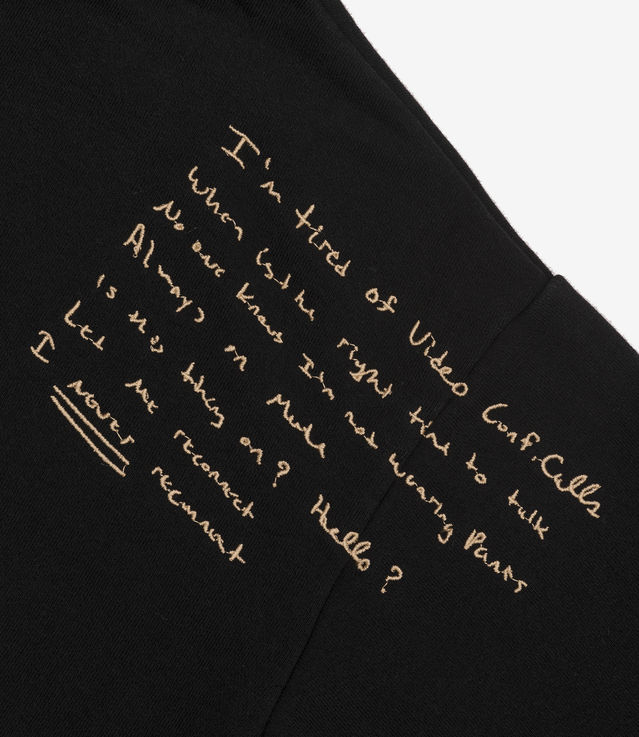 I'm tired of Video Conf. Calls
When is the right time to talk
No one knows I'm not wearing Pants
Always on Mute
is this thing on? Hello?
Let me reconnect
I never reconnect